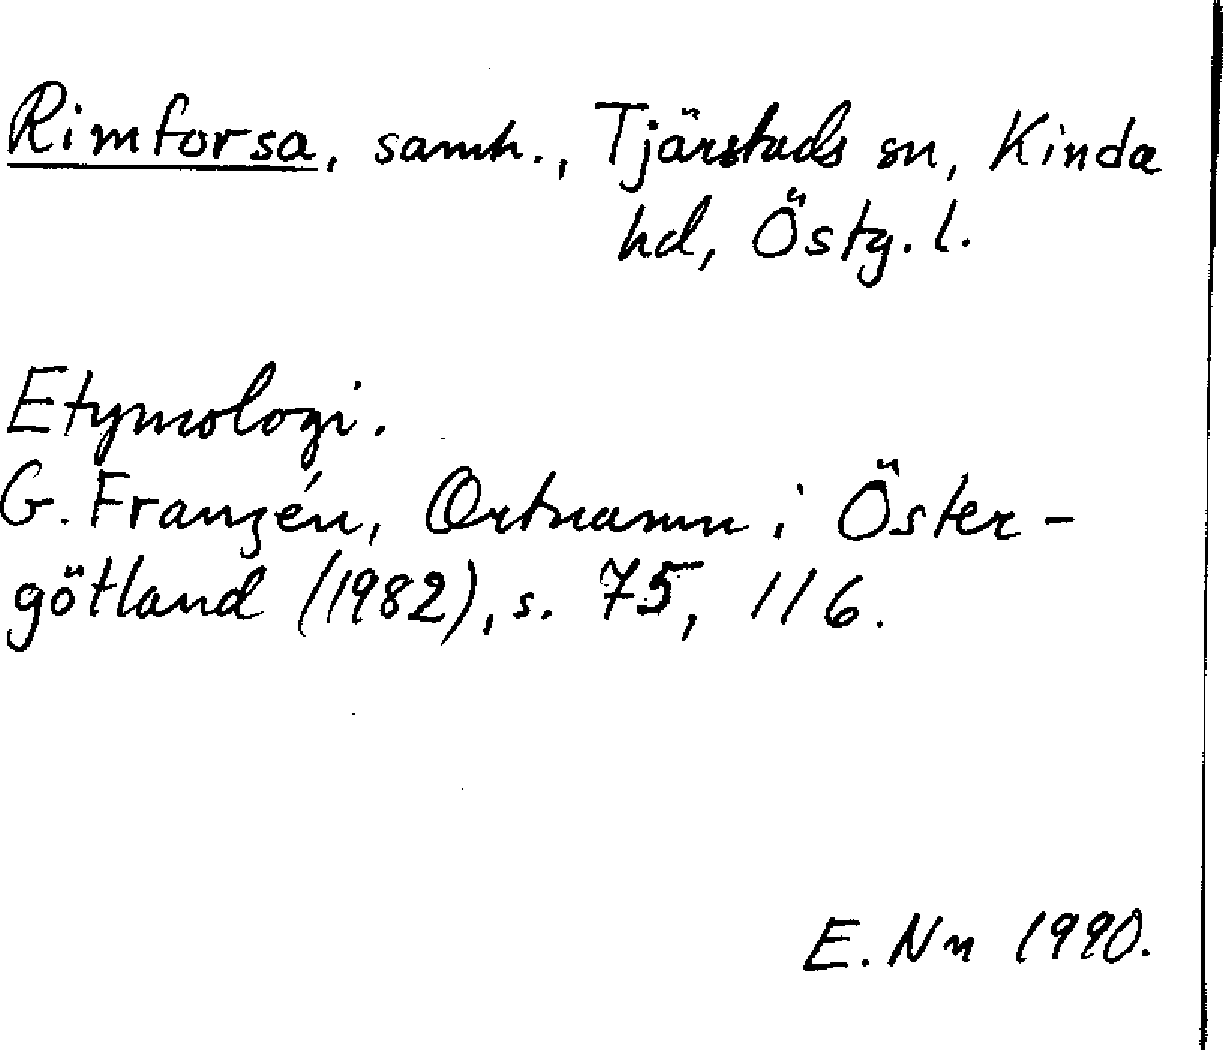 Rimforsa, samh., Tjärstads sn, Kinda
hd, Östg. l.
Etymologi.
G. Franzén, Ortnamn i Öster-
götland (1982), s. 75, 116.
E. Nn 1990.